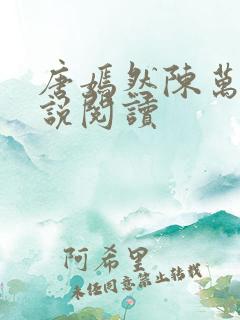 唐嫣然陳萬
說閱讀
阿希里
未经同意禁止转载